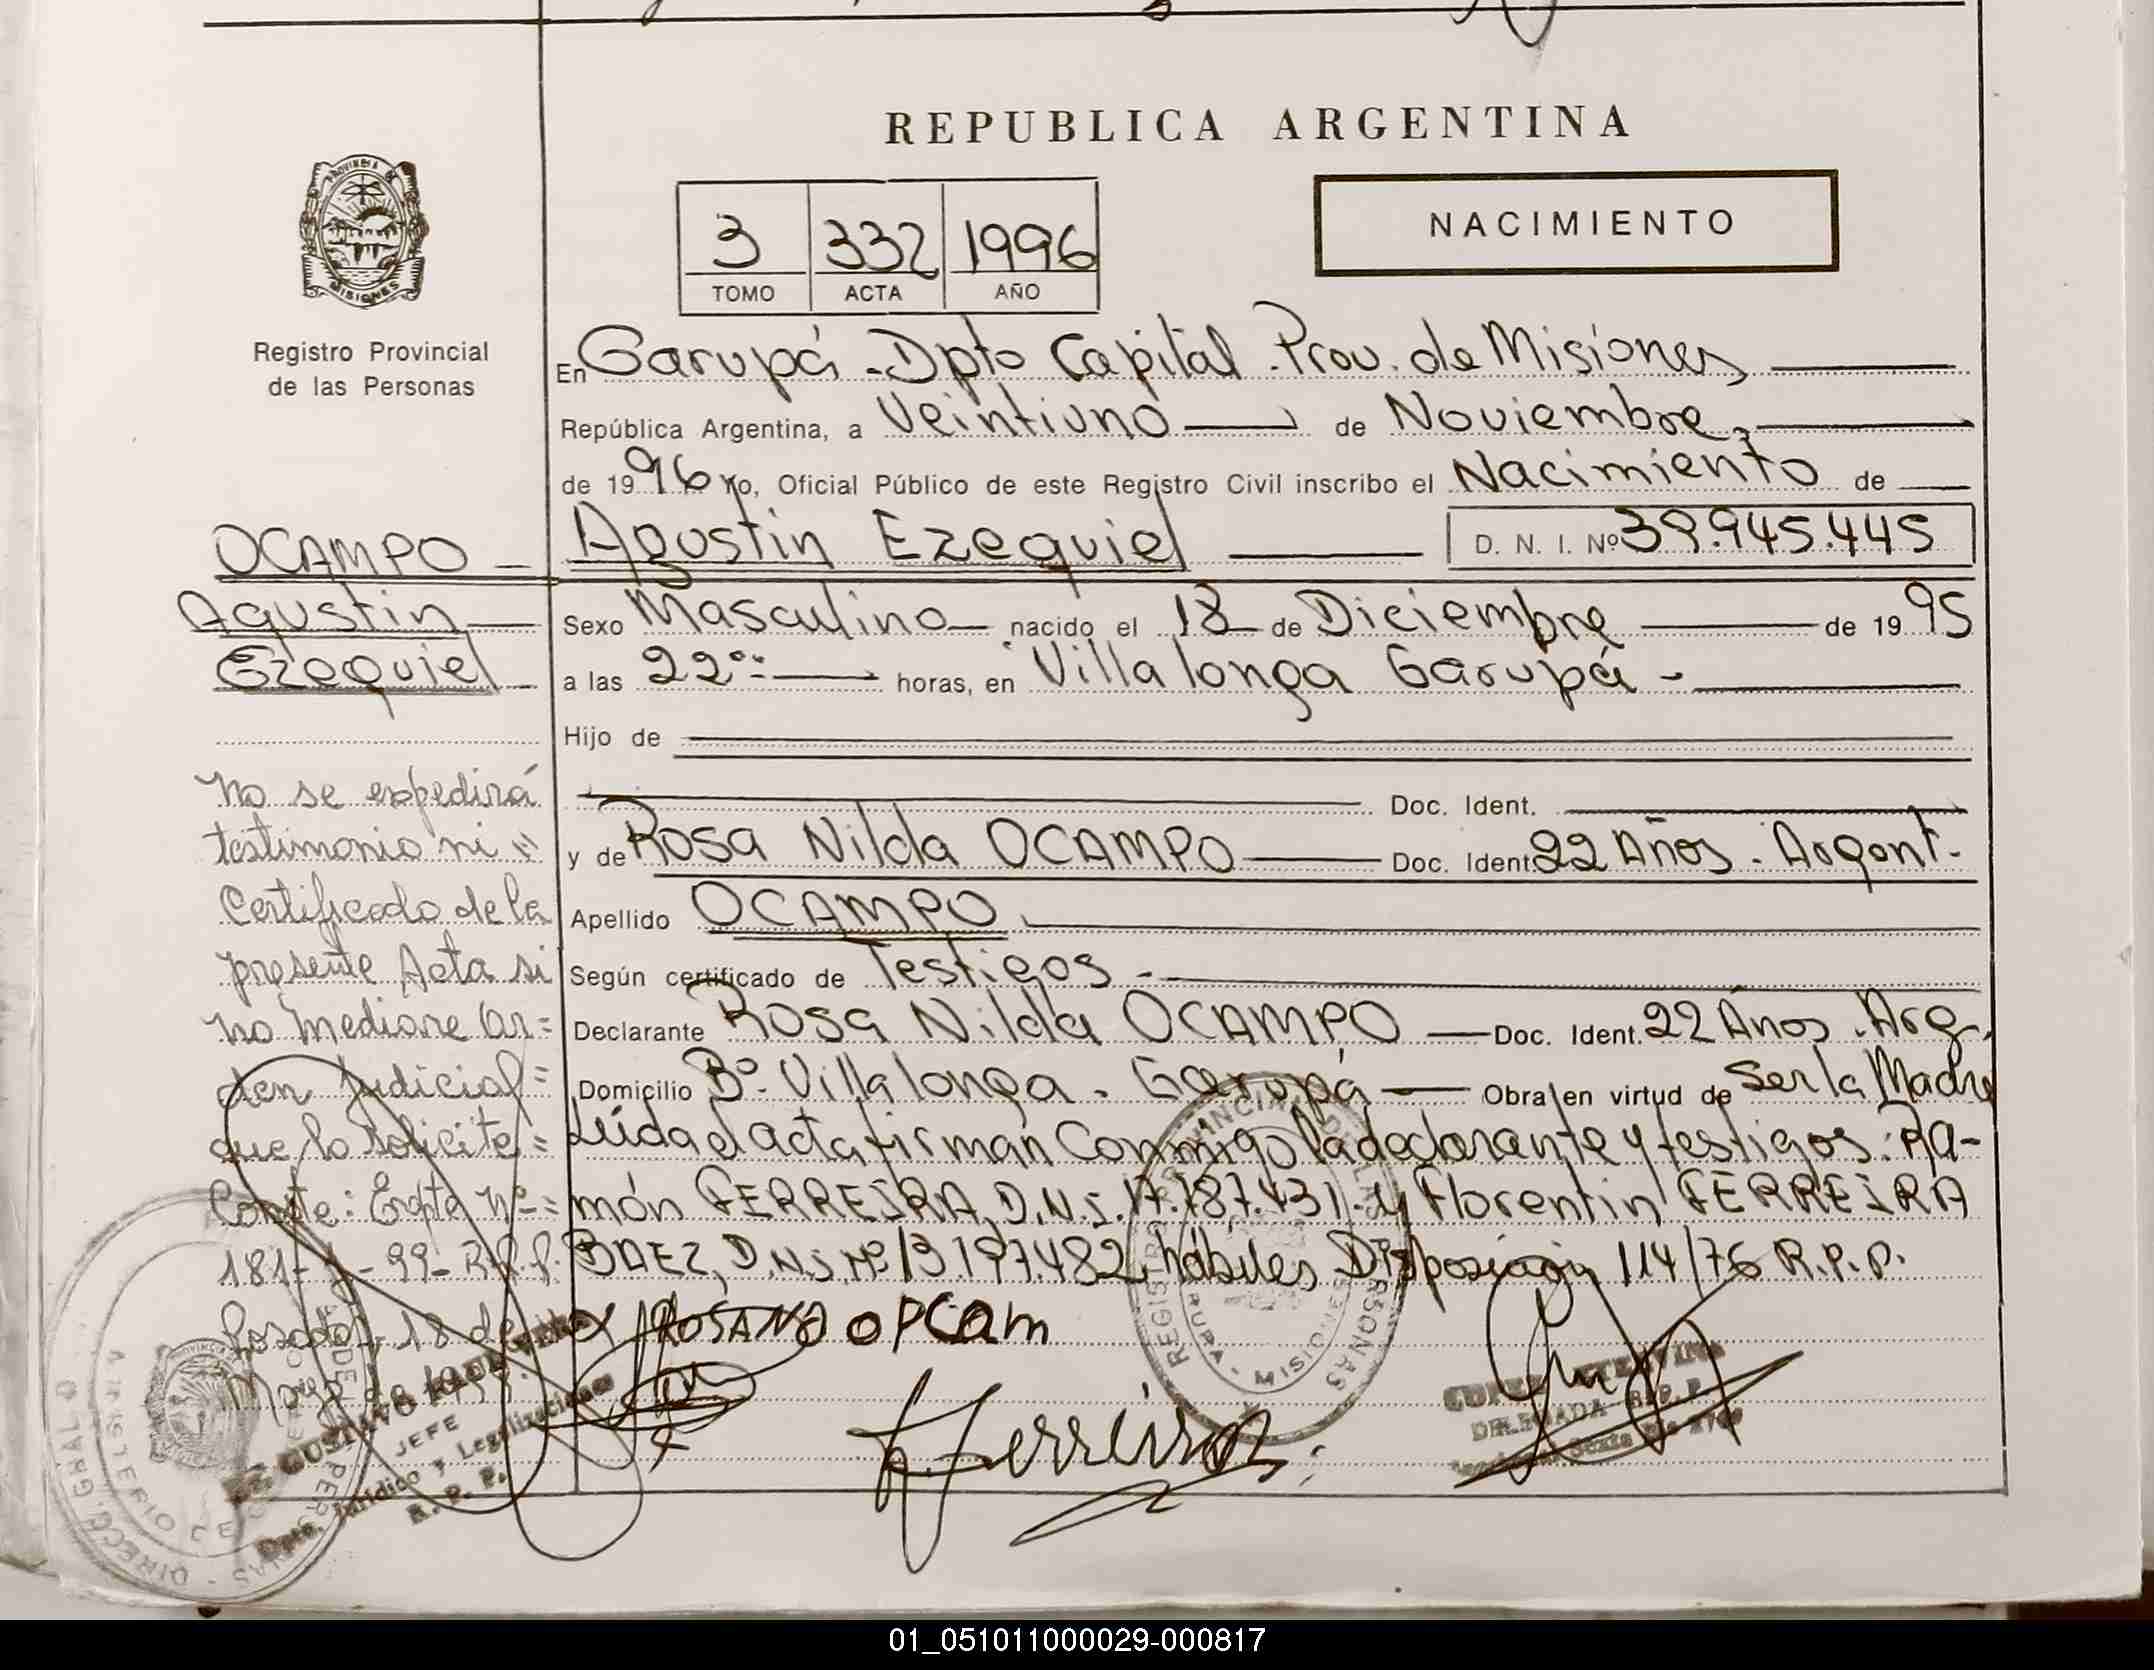 REPUBLICA ARGENTINA
NACIMIENTO
3 332 1996
TOMO ACTA AÑO
PROVINCIA DE
MISIONES
Registro Provincial
de las Personas
En Garupá - Dpto Capital - Prov. de Misiones
República Argentina, a Veintiuno de Noviembre
de 1996 Yo, Oficial Público de este Registro Civil inscribo el Nacimiento de
Agustin Ezequiel D. N. I. Nº 39.945.445
OCAMPO
Agustin
Ezequiel
Sexo Masculino nacido el 18 de Diciembre de 1995
a las 22 horas, en Villa longa Garupá -
Hijo de
Doc. Ident.
y de Rosa Nilda OCAMPO Doc. Ident. 22 Años . Argent.
Apellido OCAMPO
Según certificado de Testigos -
Declarante Rosa Nilda OCAMPO Doc. Ident. 22 Años . Arg.
Domicilio Bº Villa longa . Garupá Obra en virtud de Ser la Madre
Leída el acta firman Conmigo la declarante y testigos: RA-
món FERREIRA, D.N.I. 17.187.431 y Florentin FERREIRA
BAEZ, D.N.I. Nº 13.197.482, hábiles Disposición 114/76 R.P.P.
No se expedirá
testimonio ni
Certificado de la
presente Acta si
no mediare Or=
den Judicial=
que lo solicite=
Conste: Expte Nº=
181- -99- R.P.P.
Posadas, 18 de
Mayo de
GUSTAVO
JEFE
Dpto. Jurídico y Legalizaciones
R. P. P.
Ferreira
REGISTRO PROVINCIAL DE LAS PERSONAS
GARUPA - MISIONES
DELEGADA R.P.P.
01_051011000029-000817